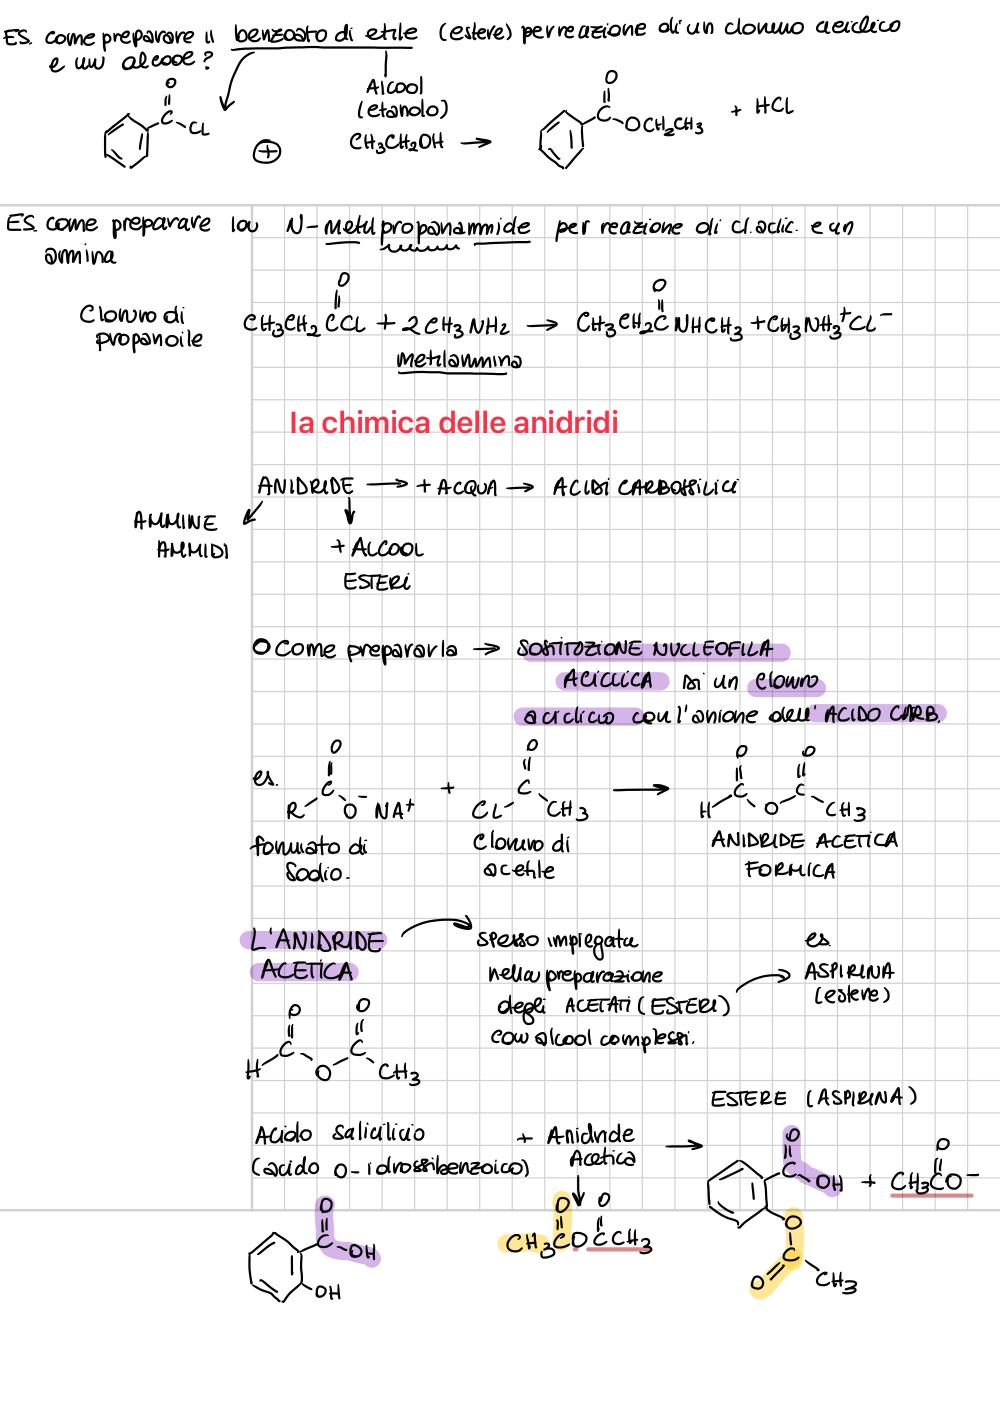 ES. come preparare il benzoato di etile (estere) per reazione di un cloruro aciclico
e un alcool?
O
C
CL
+
Alcool
(etanolo)
CH3CH2OH →
O
C
OCH2CH3
+ HCL
ES. come preparare la N-metilpropanammide per reazione di cl. aclic. e un
amina
Cloruro di
propanoile
O
CH3CH2CCL + 2CH3NH2 →
O
CH3CH2CNHCH3 + CH3NH3+CL-
metilammina
la chimica delle anidridi
ANIDRIDE → + ACQUA → ACIDI CARBOSSILICI
AMMINE
AMMIDI
+ ALCOOL
ESTERI
O Come prepararla → SOSTITUZIONE NUCLEOFILA
ACICLICA DI un cloruro
aciclico con l'anione dell'ACIDO CARB.
es.
O
R C O- NA+
+
O
CL C CH3
→
O O
H C O C CH3
formiato di
Sodio.
Cloruro di
acetile
ANIDRIDE ACETICA
FORMICA
L'ANIDRIDE
ACETICA
spesso impiegata
nella preparazione
degli ACETATI (ESTERI)
con alcool complessi.
es.
ASPIRINA
(estere)
O O
H C O C CH3
ESTERE (ASPIRINA)
Acido salicilicio
(acido O-idrossibenzoico)
+ Anidride
Acetica
→
O
C
OH
OH
O O
CH3COCCH3
O
C
OH
O
C
O
CH3
+
O
CH3CO-